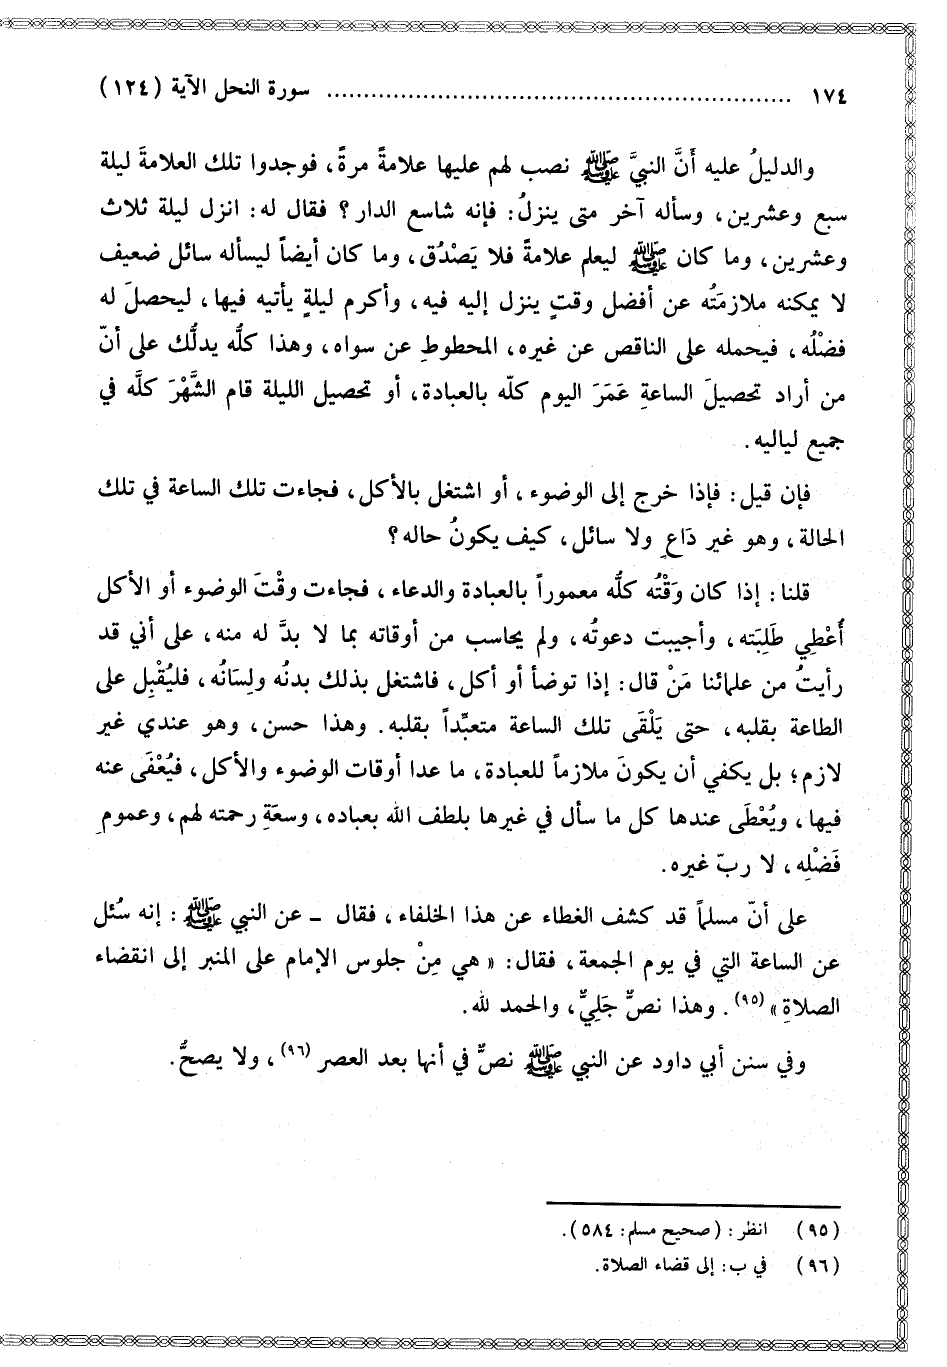 ١٧٤ ........................................ سورة النحل الآية (١٢٤)
والدليلُ عليه أَنَّ النبيَّ ﷺ نصب لهم عليها علامةً مرةً، فوجدوا تلك العلامةَ ليلة
سبع وعشرين، وسأله آخر متى ينزلُ: فإنه شاسع الدار؟ فقال له: انزل ليلة ثلاث
وعشرين، وما كان ﷺ ليعلم علامةً فلا يَصْدُق، وما كان أيضاً ليسأله سائل ضعيف
لا يمكنه ملازمَتُه عن أفضل وقتٍ ينزل إليه فيه، وأكرم ليلةٍ يأتيه فيها، ليحصلَ له
فضْلُه، فيحمله على الناقص عن غيره، المحطوطِ عن سواه، وهذا كلُّه يدلُّك على أنّ
من أراد تحصيلَ الساعةِ عَمَرَ اليوم كلّه بالعبادة، أو تحصيل الليلة قام الشَّهْرَ كلَّه في
جميع لياليه.
فإن قيل: فإذا خرج إلى الوضوء، أو اشتغل بالأكل، فجاءت تلك الساعة في تلك
الحالة، وهو غير دَاعٍ ولا سائل، كيف يكونُ حاله؟
قلنا: إذا كان وَقْتُه كلُّه معموراً بالعبادة والدعاء، فجاءت وقْتَ الوضوء أو الأكل
أُعْطِي طَلِبَته، وأجيبت دعوتُه، ولم يحاسب من أوقاته بما لا بدَّ له منه، على أني قد
رأيتُ من علمائنا مَنْ قال: إذا توضأ أو أكل، فاشتغل بذلك بدنُه ولِسَانُه، فليُقْبِل على
الطاعة بقلبه، حتى يَلْقَى تلك الساعة متعبِّداً بقلبه. وهذا حسن، وهو عندي غير
لازم؛ بل يكفي أن يكونَ ملازماً للعبادة، ما عدا أوقات الوضوء والأكل، فيُعْفَى عنه
فيها، ويُعْطَى عندها كل ما سأل في غيرها بلطف الله بعباده، وسعَةِ رحمته لهم، وعمومِ
فَضْلِه، لا ربّ غيره.
على أنّ مسلماً قد كشف الغطاء عن هذا الخلفاء، فقال ـ عن النبي ﷺ: إنه سُئل
عن الساعة التي في يوم الجمعة، فقال: «هي مِنْ جلوس الإمام على المنبر إلى انقضاء
الصلاةِ»(٩٥). وهذا نصٌّ جَلِيٌّ، والحمد لله.
وفي سنن أبي داود عن النبي ﷺ نصٌّ في أنها بعد العصر(٩٦)، ولا يصحُّ.
(٩٥) انظر: (صحيح مسلم: ٥٨٤).
(٩٦) في ب: إلى قضاء الصلاة.